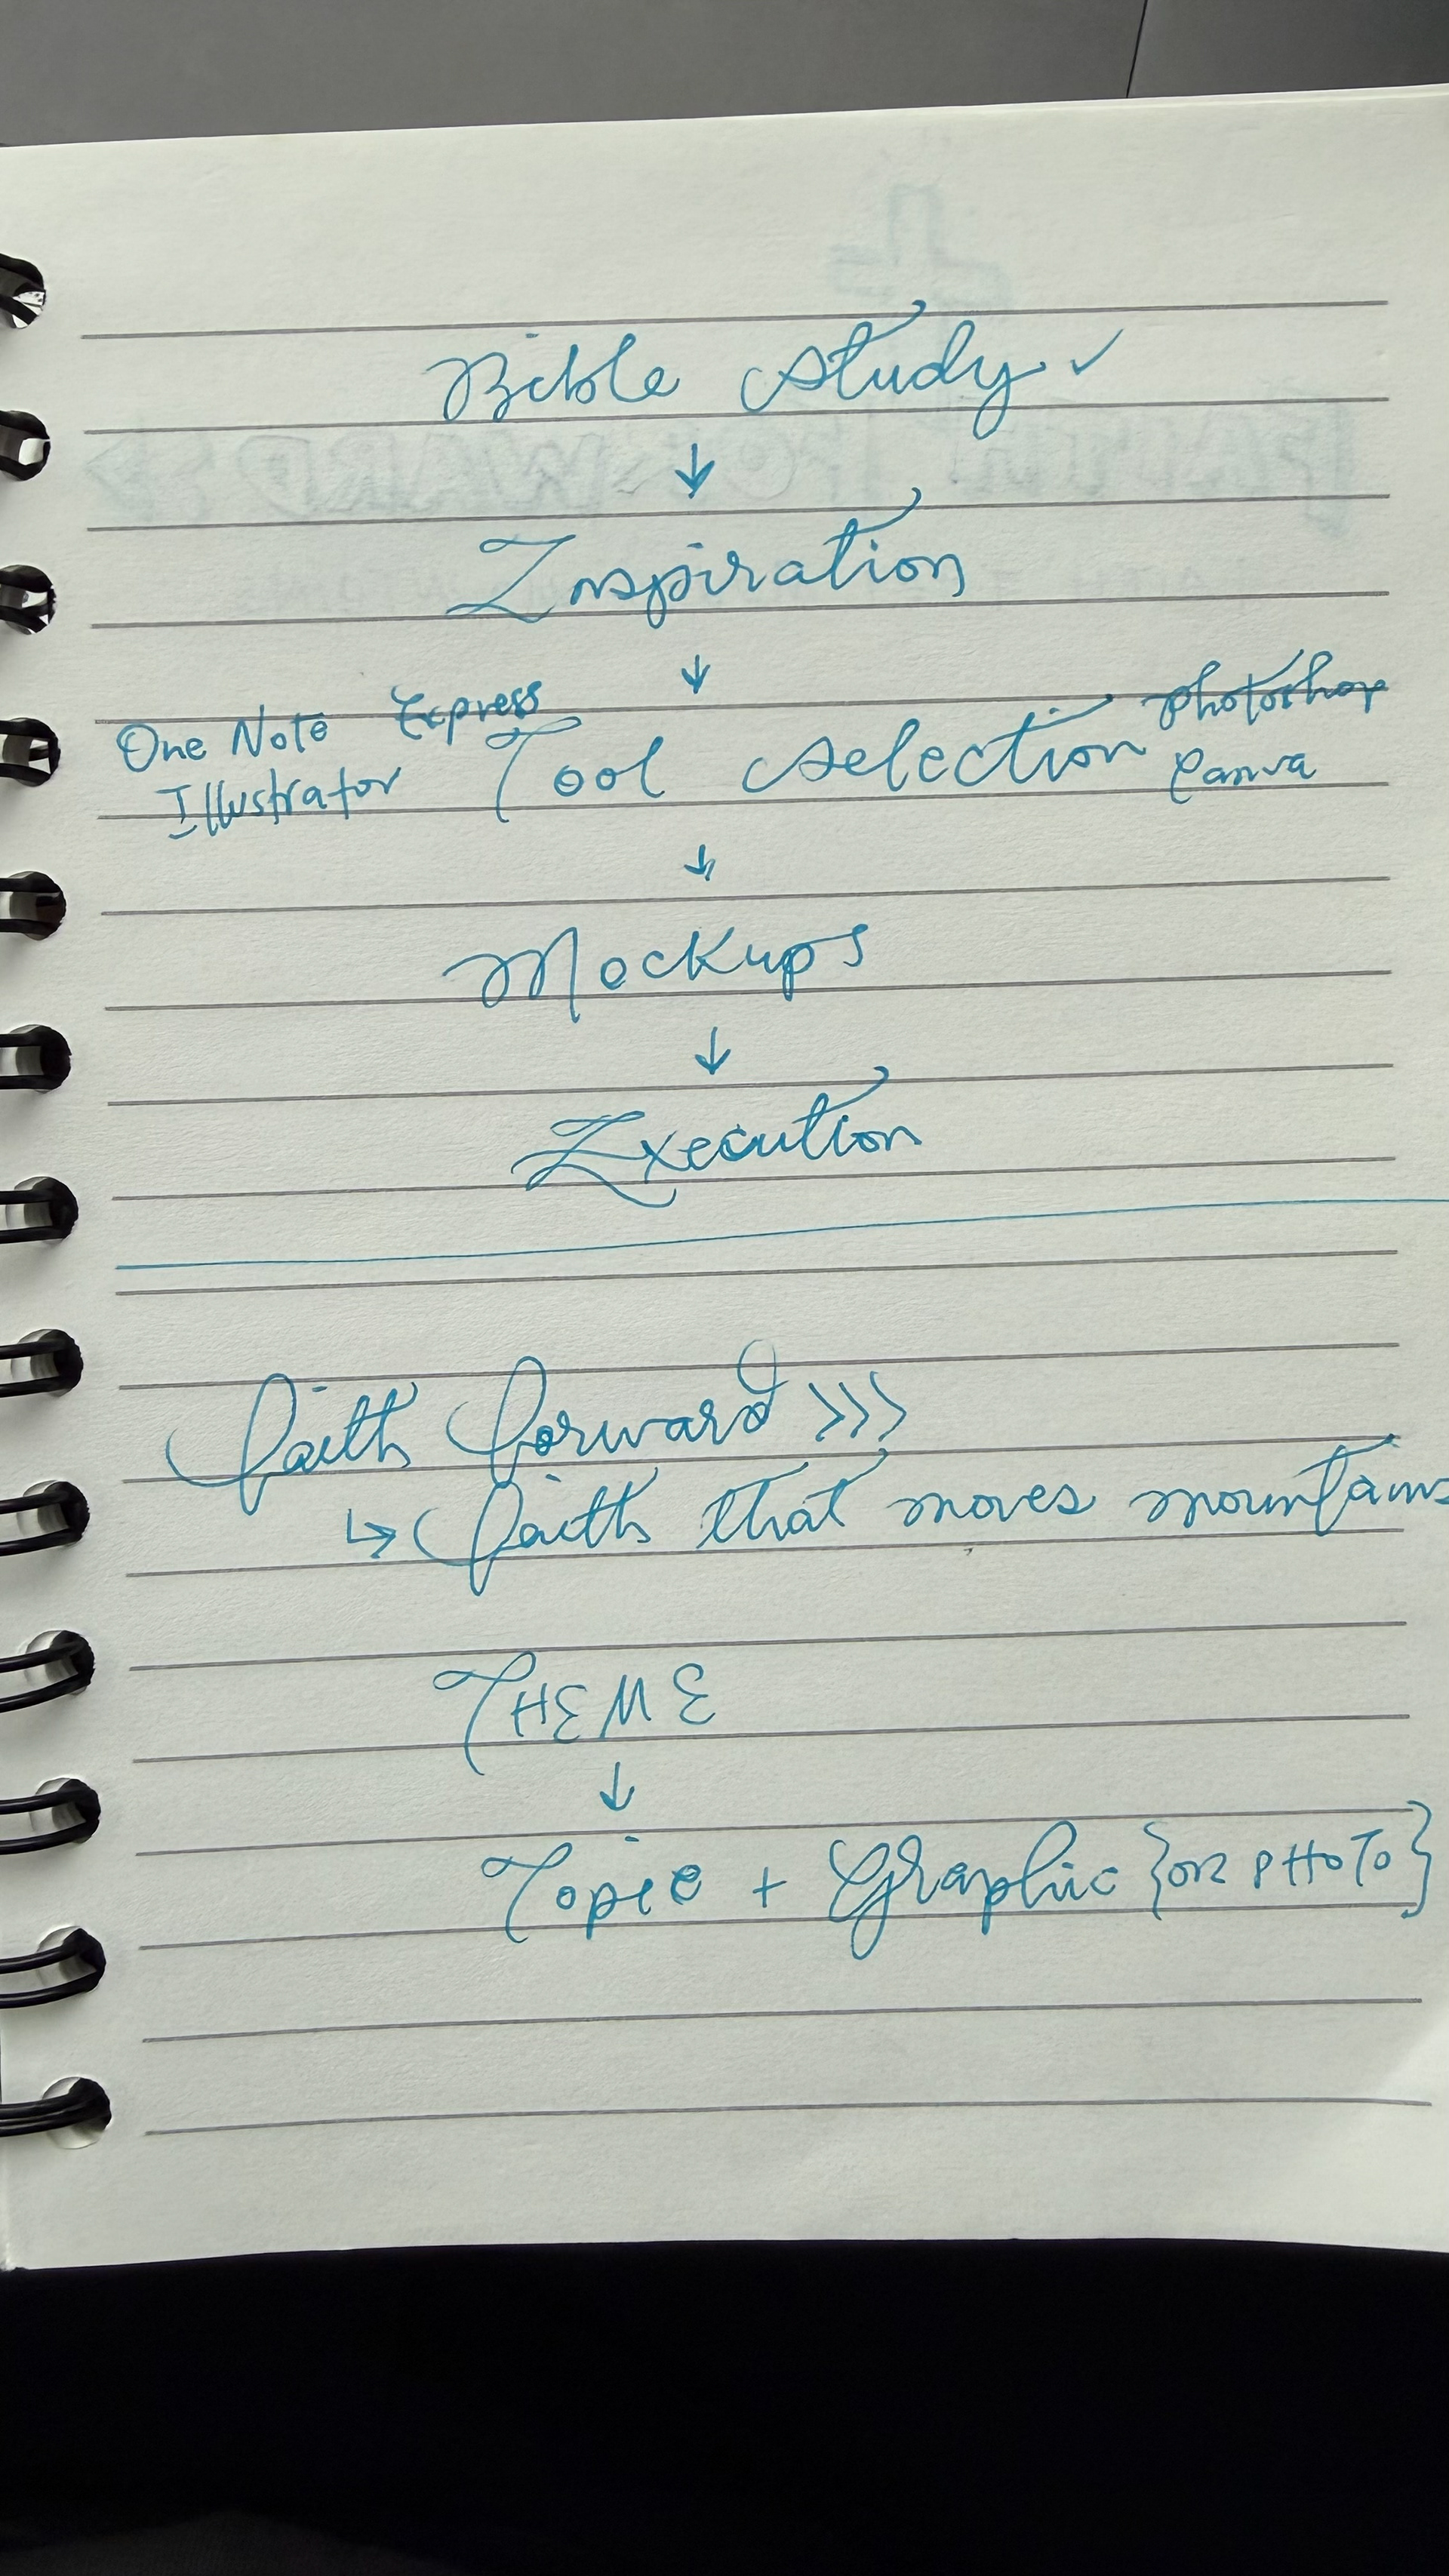 Bible Study ✓
↓
Inspiration
↓
One Note Express Tool Selection Photoshop
Illustrator Canva
↓
Mockups
↓
Execution
Faith Forward >>>
↳ Faith that moves mountains
THEME
↓
Topic + Graphic {OR PHOTO}